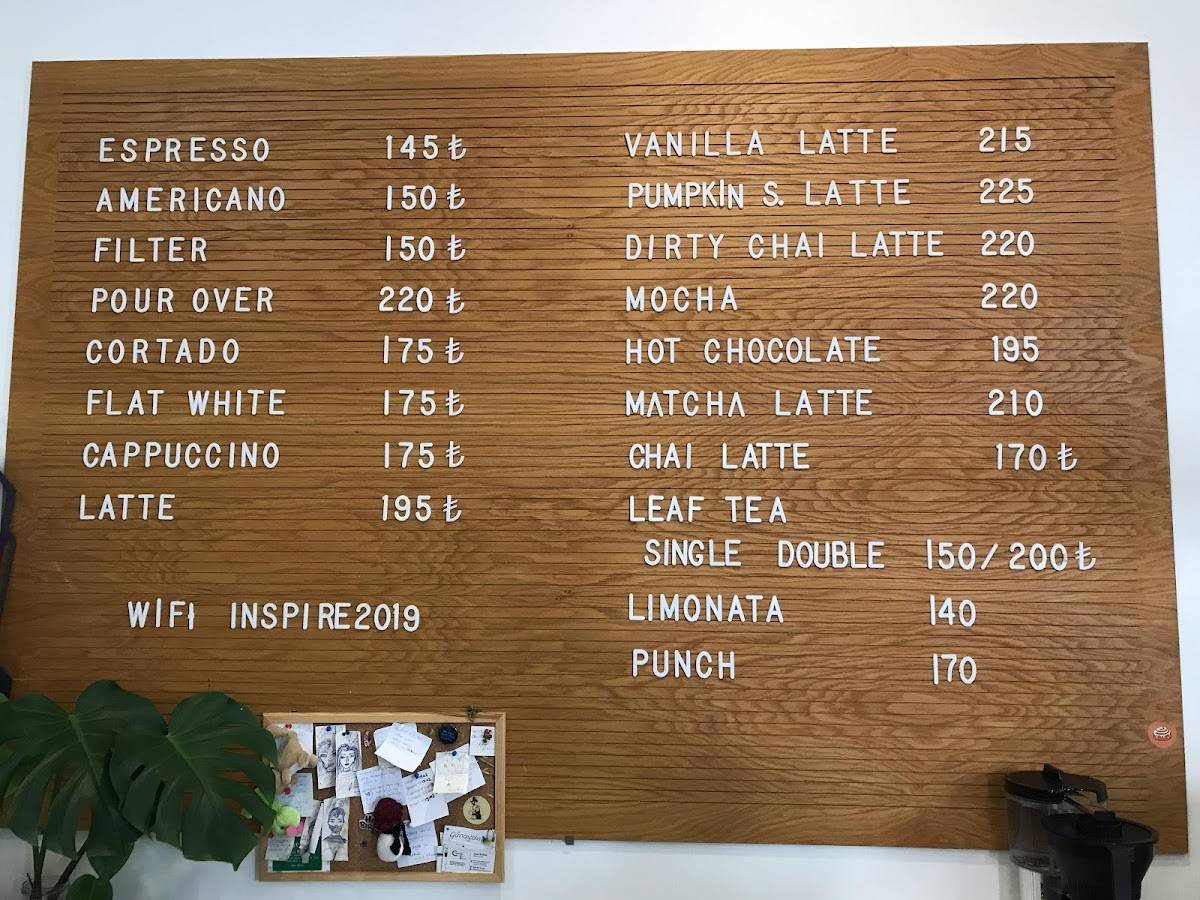 ESPRESSO 145₺
AMERICANO 150₺
FILTER 150₺
POUR OVER 220₺
CORTADO 175₺
FLAT WHITE 175₺
CAPPUCCINO 175₺
LATTE 195₺
WIFI INSPIRE2019
VANILLA LATTE 215
PUMPKIN S. LATTE 225
DIRTY CHAI LATTE 220
MOCHA 220
HOT CHOCOLATE 195
MATCHA LATTE 210
CHAI LATTE 170₺
LEAF TEA
SINGLE DOUBLE 150/200₺
LIMONATA 140
PUNCH 170